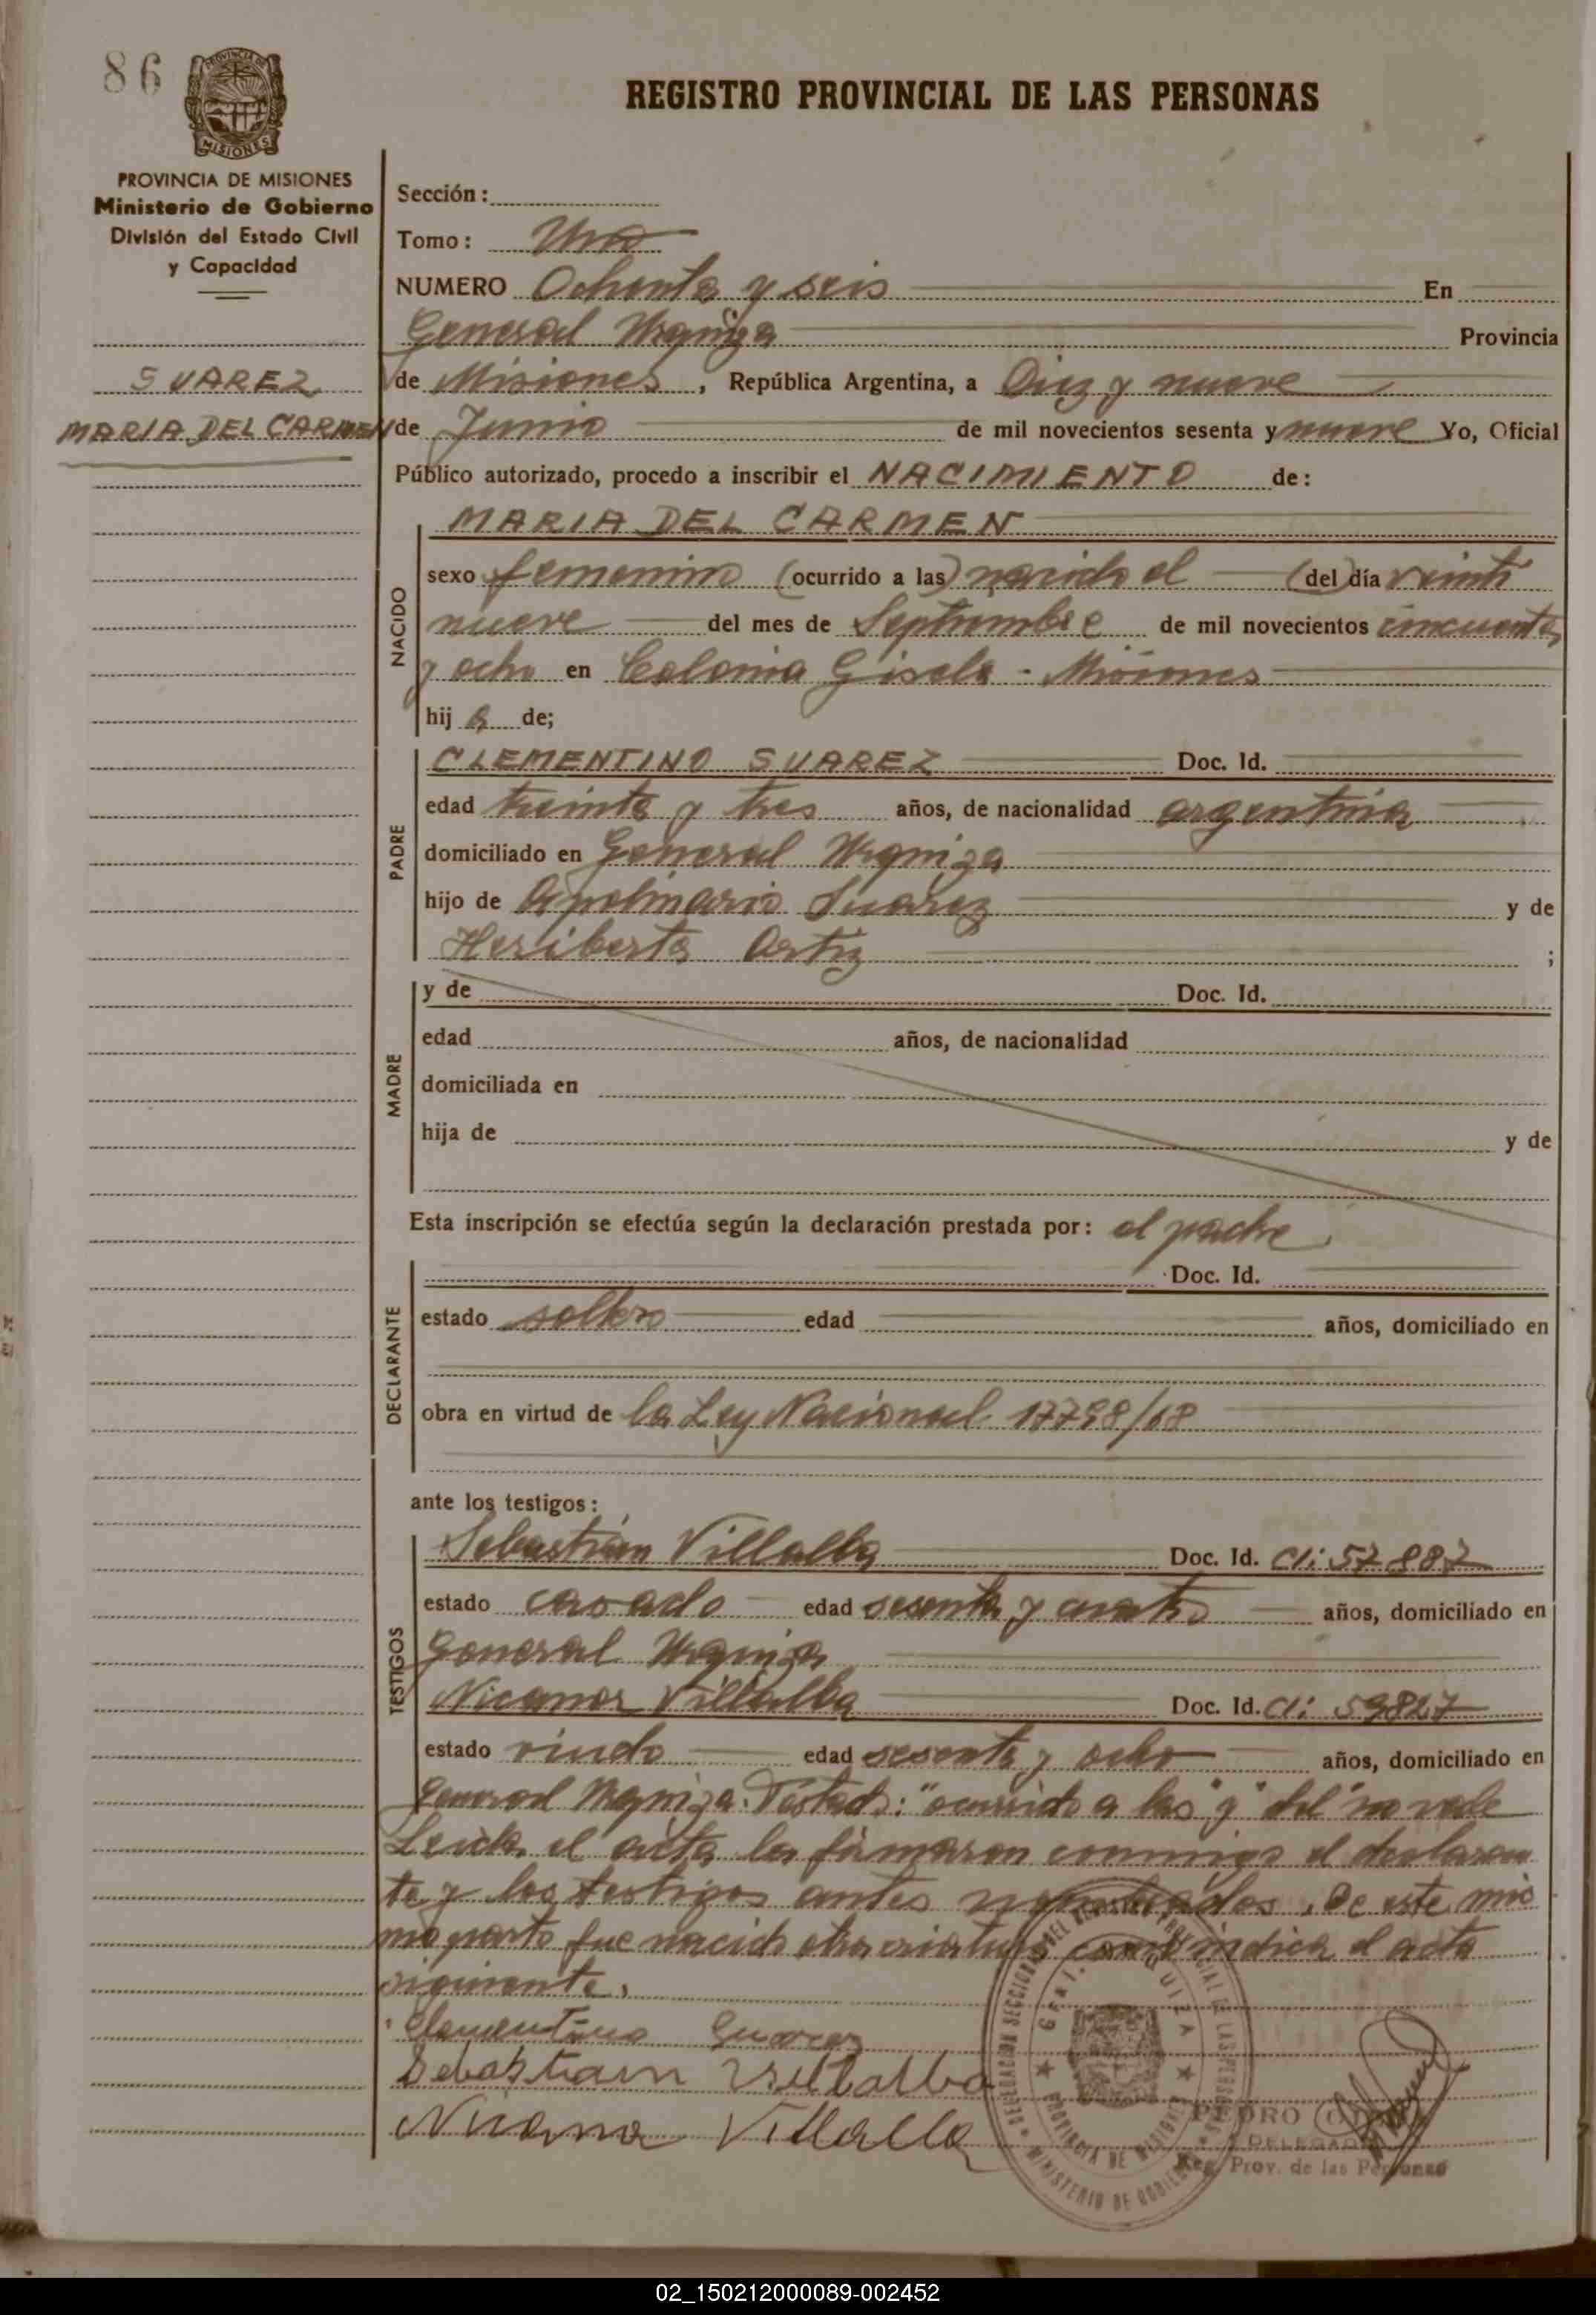 86
PROVINCIA DE
MISIONES
REGISTRO PROVINCIAL DE LAS PERSONAS
PROVINCIA DE MISIONES
Ministerio de Gobierno
División del Estado Civil
y Capacidad
SUAREZ
MARIA DEL CARMEN
Sección:
Tomo: Uno
NUMERO Ochenta y seis En
General Urquiza Provincia
de Misiones, República Argentina, a Diez y nueve
de Junio de mil novecientos sesenta y nueve Yo, Oficial
Público autorizado, procedo a inscribir el NACIMIENTO de:
NACIDO
MARIA DEL CARMEN
sexo femenino (ocurrido a las) nacido el (del) día veinti
nueve del mes de Septiembre de mil novecientos cincuenta
y ocho en Colonia Gisela - Misiones
hij a de;
PADRE
CLEMENTINO SUAREZ Doc. Id.
edad treinta y tres años, de nacionalidad argentina
domiciliado en General Urquiza
hijo de Apolinario Suarez y de
Heriberta Ortiz ;
MADRE
y de Doc. Id.
edad años, de nacionalidad
domiciliada en
hija de y de
Esta inscripción se efectúa según la declaración prestada por: el padre
DECLARANTE
Doc. Id.
estado soltero edad años, domiciliado en
obra en virtud de la Ley Nacional 17798/68
ante los testigos:
TESTIGOS
Sebastián Villalba Doc. Id. CI: 57887
estado casado edad sesenta y cuatro años, domiciliado en
General Urquiza
Nicanor Villalba Doc. Id. CI: 59827
estado viudo edad sesenta y ocho años, domiciliado en
General Urquiza. Testado: "ocurrido a las" y "del" no vale
Leida el acta la firmaron conmigo el declaran
te y los testigos antes nombrados. De este mis
mo parto fue nacido otra criatura como indica el acta
siguiente.
Clementino Suarez
Sebastian Villalba
Nicanor Villalba
DELEGACION SECCIONAL DEL REGISTRO PROVINCIAL DE LAS PERSONAS
GRAL. URQUIZA
PROVINCIA DE MISIONES
MINISTERIO DE GOBIERNO
PEDRO
DELEGADO
Reg. Prov. de las Personas
02_150212000089-002452